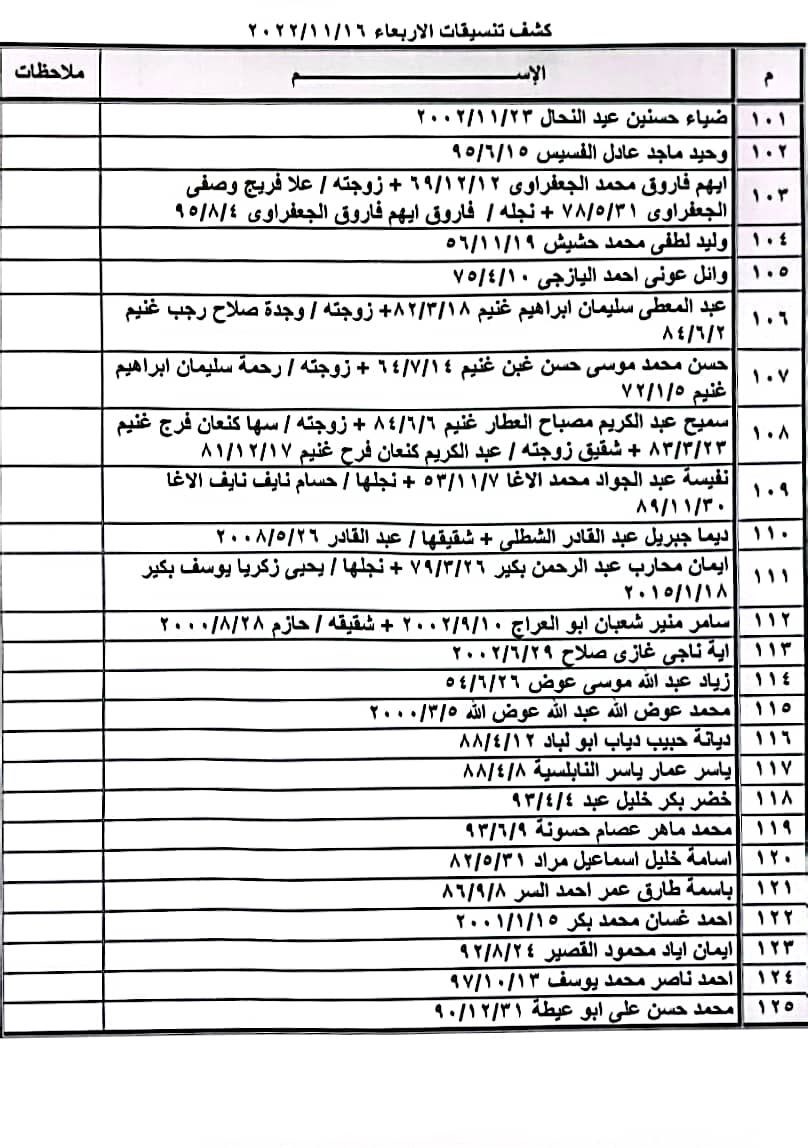 كشف تنسيقات الاربعاء ٢٠٢٢/١١/١٦
م الإســـــم ملاحظات
١٠١ ضياء حسنين عيد النحال ٢٠٠٢/١١/٢٣
١٠٢ وحيد ماجد عادل الفسيس ٩٥/٦/١٥
١٠٣ ايهم فاروق محمد الجعفراوى ٦٩/١٢/١٢ + زوجته / علا فريج وصفى
الجعفراوى ٧٨/٥/٣١ + نجله / فاروق ايهم فاروق الجعفراوى ٩٥/٨/٤
١٠٤ وليد لطفى محمد حشيش ٥٦/١١/١٩
١٠٥ وائل عونى احمد اليازجى ٧٥/٤/١٠
١٠٦ عبد المعطى سليمان ابراهيم غنيم ٨٢/٣/١٨+ زوجته / وجدة صلاح رجب غنيم
٨٤/٦/٢
١٠٧ حسن محمد موسى حسن غبن غنيم ٦٤/٧/١٤ + زوجته / رحمة سليمان ابراهيم
غنيم ٧٢/١/٥
١٠٨ سميح عبد الكريم مصباح العطار غنيم ٨٤/٦/٦ + زوجته / سها كنعان فرج غنيم
٨٣/٣/٢٣ + شقيق زوجته / عبد الكريم كنعان فرح غنيم ٨١/١٢/١٧
١٠٩ نفيسة عبد الجواد محمد الاغا ٥٣/١١/٧ + نجلها / حسام نايف نايف الاغا
٨٩/١١/٣٠
١١٠ ديما جبريل عبد القادر الشطلى + شقيقها / عبد القادر ٢٠٠٨/٥/٢٦
١١١ ايمان محارب عبد الرحمن بكير ٧٩/٣/٢٦ + نجلها / يحيى زكريا يوسف بكير
٢٠١٥/١/١٨
١١٢ سامر منير شعبان ابو العراج ٢٠٠٢/٩/١٠ + شقيقه / حازم ٢٠٠٠/٨/٢٨
١١٣ اية ناجى غازى صلاح ٢٠٠٢/٦/٢٩
١١٤ زياد عبد الله موسى عوض ٥٤/٦/٢٦
١١٥ محمد عوض الله عبد الله عوض الله ٢٠٠٠/٣/٥
١١٦ ديانة حبيب دياب ابو لباد ٨٨/٤/١٢
١١٧ ياسر عمار ياسر النابلسية ٨٨/٤/٨
١١٨ خضر بكر خليل عبد ٩٣/٤/٤
١١٩ محمد ماهر عصام حسونة ٩٣/٦/٩
١٢٠ اسامة خليل اسماعيل مراد ٨٢/٥/٣١
١٢١ باسمة طارق عمر احمد السر ٨٦/٩/٨
١٢٢ احمد غسان محمد بكر ٢٠٠١/١/١٥
١٢٣ ايمان اياد محمود القصير ٩٢/٨/٢٤
١٢٤ احمد ناصر محمد يوسف ٩٧/١٠/١٣
١٢٥ محمد حسن على ابو عيطة ٩٠/١٢/٣١